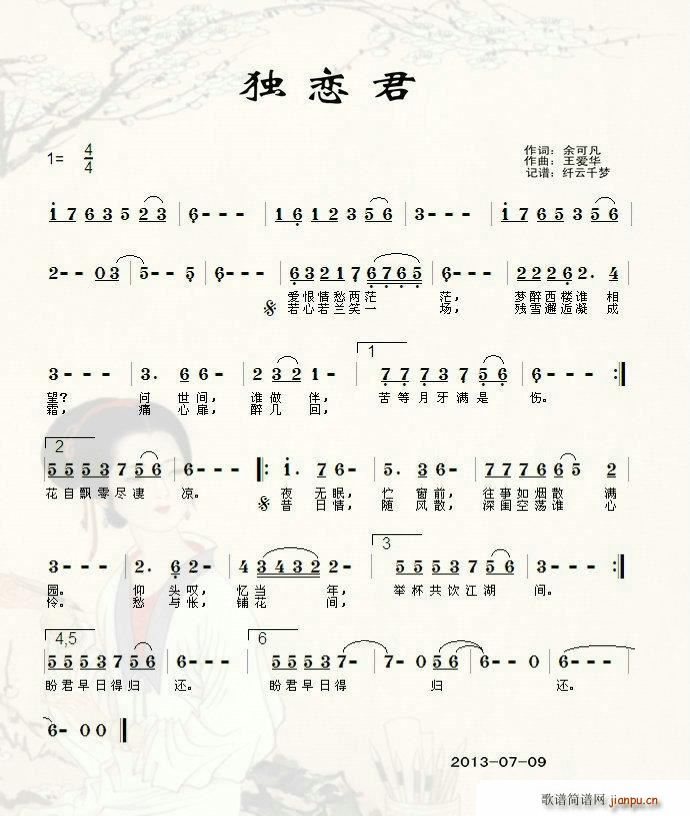 独恋君
1= 4/4
作词：余可凡
作曲：王爱华
记谱：纤云千梦
1 7 6 3 5 2 3 | 6 - - - | 1 6 1 2 3 5 6 | 3 - - - | 1 7 6 5 3 5 6 |
2 - - 0 3 | 5 - - 5 | 6 - - - | 6 3 2 1 7 6 7 6 5 | 6 - - - | 2 2 2 6 2. 4
爱恨情愁两茫 茫， 梦醉西楼谁 相
若心若兰笑一 场， 残雪邂逅凝 成
3 - - - | 3. 6 3 6 - | 2 3 2 1 - | 1 7 7 7 3 7 5 6 | 6 - - - :|
望？ 问 世间， 谁做伴， 苦等月牙满是 伤。
霜， 痛 心扉， 醉几回，
2
5 5 5 3 7 5 6 | 6 - - - |: 1. 7 6 - | 5. 3 6 - | 7 7 7 6 6 5 2
花自飘零尽凄 凉。 夜 无眠， 伫 窗前， 往事如烟散 满
昔 日情， 随 风散， 深闺空荡谁 心
3 - - - | 2. 6 2 - | 3 4 3 2 3 - | 3 5 5 5 3 7 5 6 | 3 - - - :|
园。 仰 头叹， 忆当 年， 举杯共饮江湖 间。
怜。 愁 与怅， 铺花 间，
4,5 6
5 5 5 3 7 5 6 | 6 - - - | 5 5 5 3 7 - | 7 - 0 5 6 | 6 - - 0 | 6 - - -
盼君早日得归 还。 盼君早日得 归 还。
6 - 0 0
2013-07-09
歌谱简谱网
jianpu.cn